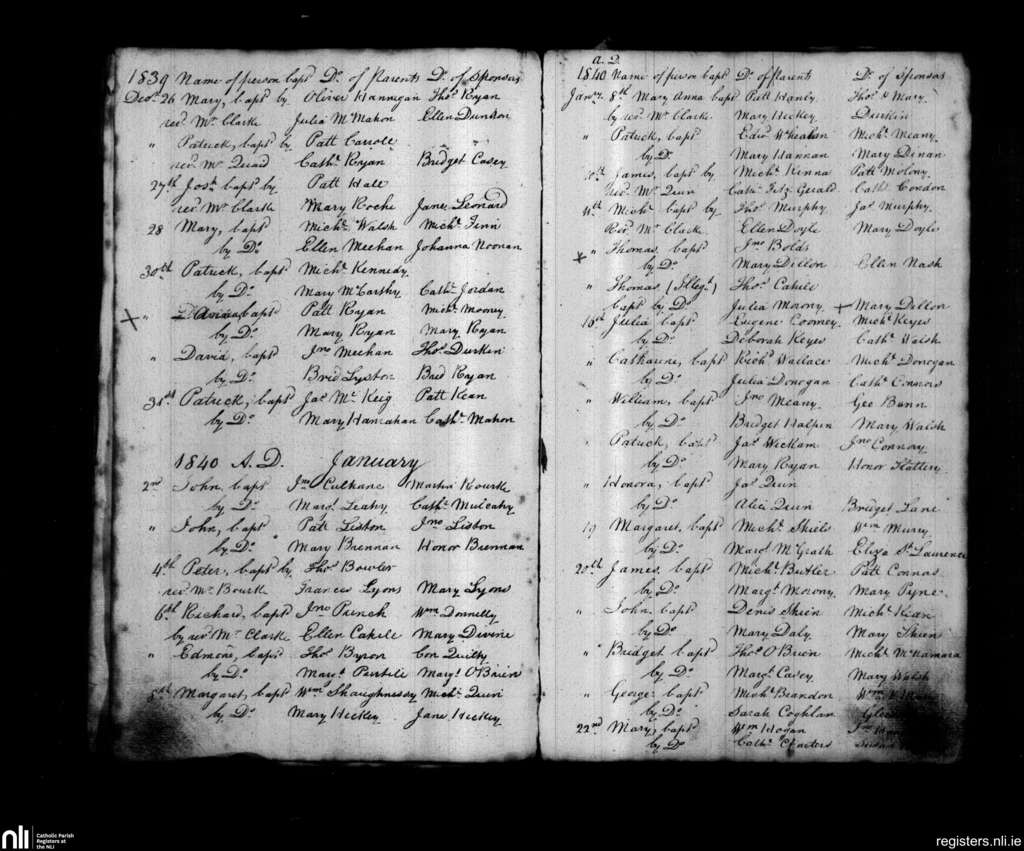 1839 Name of person bapt Do. of Parents Do. of Sponsors
Decr. 26 Mary, bapt by Oliver Hannigan Thos. Ryan
revd. Mr. Clarke Julia McMahon Ellen Dunson
" Patrick, bapt by Patt Carroll " "
revd. Mr. Quaid Cathn. Ryan Bridget Casey
27th Josh. bapt by Patt Hall
revd. Mr. Clarke Mary Roche Jane Leonard
28 Mary, bapt Michl. Walsh Michl. Finn
by Do. Ellen Meehan Johanna Noonan
30th Patrick, bapt Michl. Kennedy
by Do. Mary McCarthy Cathn. Jordan
" bapt Patt Ryan Michl. Mooney
by Do. Mary Ryan Mary Ryan
" David, bapt Jno Meehan Thos. Durkin
by Do. Brid Lyston Brid Ryan
31st Patrick, bapt Jas. Mc. Keig Patt Kean
by Do. Mary Hanrahan Cathn. Mahon
1840 A.D. January
2nd John bapt Jno Culhane Martin Rourke
by Do. Margt. Leahy Cathn. Mulcahy
" John, bapt Patt Liston Jno. Liston
by Do. Mary Brennan Honor Brennan
4th Peter, bapt by Thos. Bowler
revd. Mr. Bourke Frances Lyons Mary Lyons
6th Richard, bapt Jno Punch Wm Donnelly
by revd Mr. Clarke Ellen Cahill Mary Divine
" Edmond, bapt Thos. Byron Con Quilty
by Do. Margt. Margt. OBrien
8th Margaret, bapt Wm Shaughnessy Michl. Quin
by Do. Mary Hickey Jane Hickey
A. D.
1840 Name of person bapt Do. of Parents Do. of Sponsors
Jany. 8th Mary Anna bapt Patt Hanly Thos. & Mary
by revd. Mr. Clark Mary Hickey Durkin
" Patrick, bapt Edwd. Whealan Michl. Meany
by Do. Mary Hannan Mary Dinan
10th James, bapt by Michl. Kinna Patt Molony
revd. Mr. Quin Cathn. Fitz Gerald Cathn. Condon
11th Michl. bapt by Thos. Murphy Jas. Murphy
Revd. Mr. Clark Ellen Doyle Mary Doyle
" Thomas, bapt Jno Bolds
by Do. Mary Dillon Ellen Nash
" Thomas (Illegt.) Thos. Cahill
bapt by Do. Julia Morony Mary Dillon
16th Julia bapt Eugene Coomey Michl. Keyes
by Do. Deborah Keyes Cathn. Walsh
" Catharine, bapt Richd. Wallace Michl. Donogan
by Do. Julia Donogan Cathn. Connors
" William, bapt Jno Meany Geo Bunn
by Do. Bridget Halpin Mary Walsh
" Patrick, bapt Jas. Wickham Jno Connory
by Do. Mary Ryan Honor Flattery
" Honora, bapt Jas. Quin
by Do. Alice Quin Bridget Lane
19 Margaret, bapt Michl. Shiels Wm Murry
by Do. Margt. McGrath Eliza St. Laurence
20th James, bapt Michl. Butler Patt Connors
by Do. Margt. Morony Mary Pyne
" John, bapt Denis Michl. Kean
by Do. Mary Daly Mary
" Bridget bapt Thos. OBrien Michl. McNamara
by Do. Margt. Casey Mary Walsh
" George bapt Michl. Brandon Wm
by Do. Sarah Coghlan
22nd Mary, bapt Wm Hogan
by Do. Cathn. Charters Susan
nli
Catholic Parish
Registers at
the NLI
registers.nli.ie